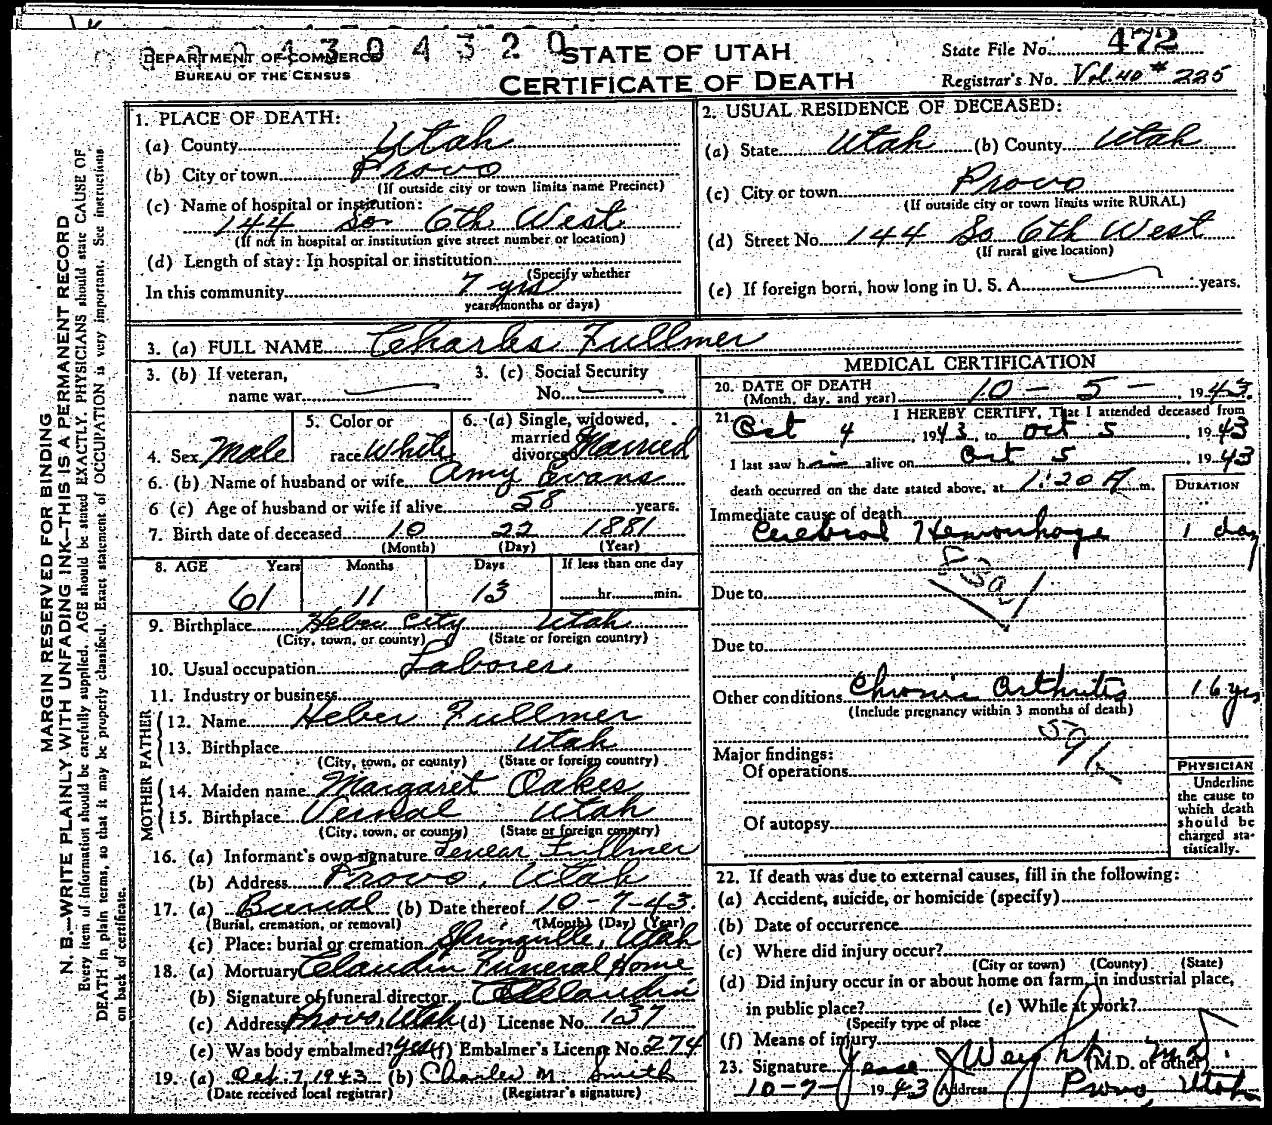 0004304320
DEPARTMENT OF COMMERCE
BUREAU OF THE CENSUS
STATE OF UTAH
CERTIFICATE OF DEATH
State File No. 472
Registrar's No. Vol. 40 # 225
MARGIN RESERVED FOR BINDING
N. B.—WRITE PLAINLY WITH UNFADING INK—THIS IS A PERMANENT RECORD
Every item of information should be carefully supplied. AGE should be stated EXACTLY. PHYSICIANS should state CAUSE OF
DEATH in plain terms, so that it may be properly classified. Exact statement of OCCUPATION is very important. See instructions
on back of certificate.
1. PLACE OF DEATH:
(a) County Utah
(b) City or town Provo
(If outside city or town limits name Precinct)
(c) Name of hospital or institution:
144 So 6th West
(If not in hospital or institution give street number or location)
(d) Length of stay: In hospital or institution
(Specify whether
In this community 7 yrs
years, months or days)
2. USUAL RESIDENCE OF DECEASED:
(a) State Utah (b) County Utah
(c) City or town Provo
(If outside city or town limits write RURAL)
(d) Street No. 144 So 6th West
(If rural give location)
(e) If foreign born, how long in U. S. A. years.
3. (a) FULL NAME Charles Fullmer
3. (b) If veteran, 3. (c) Social Security
name war No.
4. Sex Male
5. Color or
race White
6. (a) Single, widowed,
married or
divorced Married
6. (b) Name of husband or wife Amy Evans
6 (c) Age of husband or wife if alive 58 years.
7. Birth date of deceased 10 22 1881
(Month) (Day) (Year)
8. AGE Years Months Days If less than one day
61 11 13 hr. min.
9. Birthplace Heber City Utah
(City, town, or county) (State or foreign country)
10. Usual occupation Laborer
11. Industry or business
FATHER
12. Name Heber Fullmer
13. Birthplace Utah
(City, town, or county) (State or foreign country)
MOTHER
14. Maiden name Margaret Oakes
15. Birthplace Vernal Utah
(City, town, or county) (State or foreign country)
16. (a) Informant's own signature Fullmer
(b) Address Provo, Utah
17. (a) Burial (b) Date thereof 10-7-43.
(Burial, cremation, or removal) (Month) (Day) (Year)
(c) Place: burial or cremation Springville, Utah
18. (a) Mortuary Claudin Funeral Home
(b) Signature of funeral director Claudin
(c) Address Provo, Utah (d) License No. 137
(e) Was body embalmed? yes (f) Embalmer's License No. 274
19. (a) Oct. 7, 1943 (b) Charles M. Smith
(Date received local registrar) (Registrar's signature)
MEDICAL CERTIFICATION
20. DATE OF DEATH 10 - 5 - , 1943.
(Month, day, and year)
21. I HEREBY CERTIFY, That I attended deceased from
Oct 4, 1943, to Oct 5, 1943
I last saw him alive on Oct 5 1943
death occurred on the date stated above, at 1:20 A m.
DURATION
Immediate cause of death
Cerebral Hemorrhage 1 day
83a
Due to
Due to
Other conditions Chronic Arthritis 16 yrs
(Include pregnancy within 3 months of death)
Major findings:
Of operations
Of autopsy
PHYSICIAN
Underline
the cause to
which death
should be
charged sta-
tistically.
22. If death was due to external causes, fill in the following:
(a) Accident, suicide, or homicide (specify)
(b) Date of occurrence
(c) Where did injury occur?
(City or town) (County) (State)
(d) Did injury occur in or about home on farm, in industrial place,
in public place? (e) While at work?
(Specify type of place
(f) Means of injury
23. Signature Jesse J Weight (M.D. or other) M.D.
10-7- 1943 Address Provo, Utah